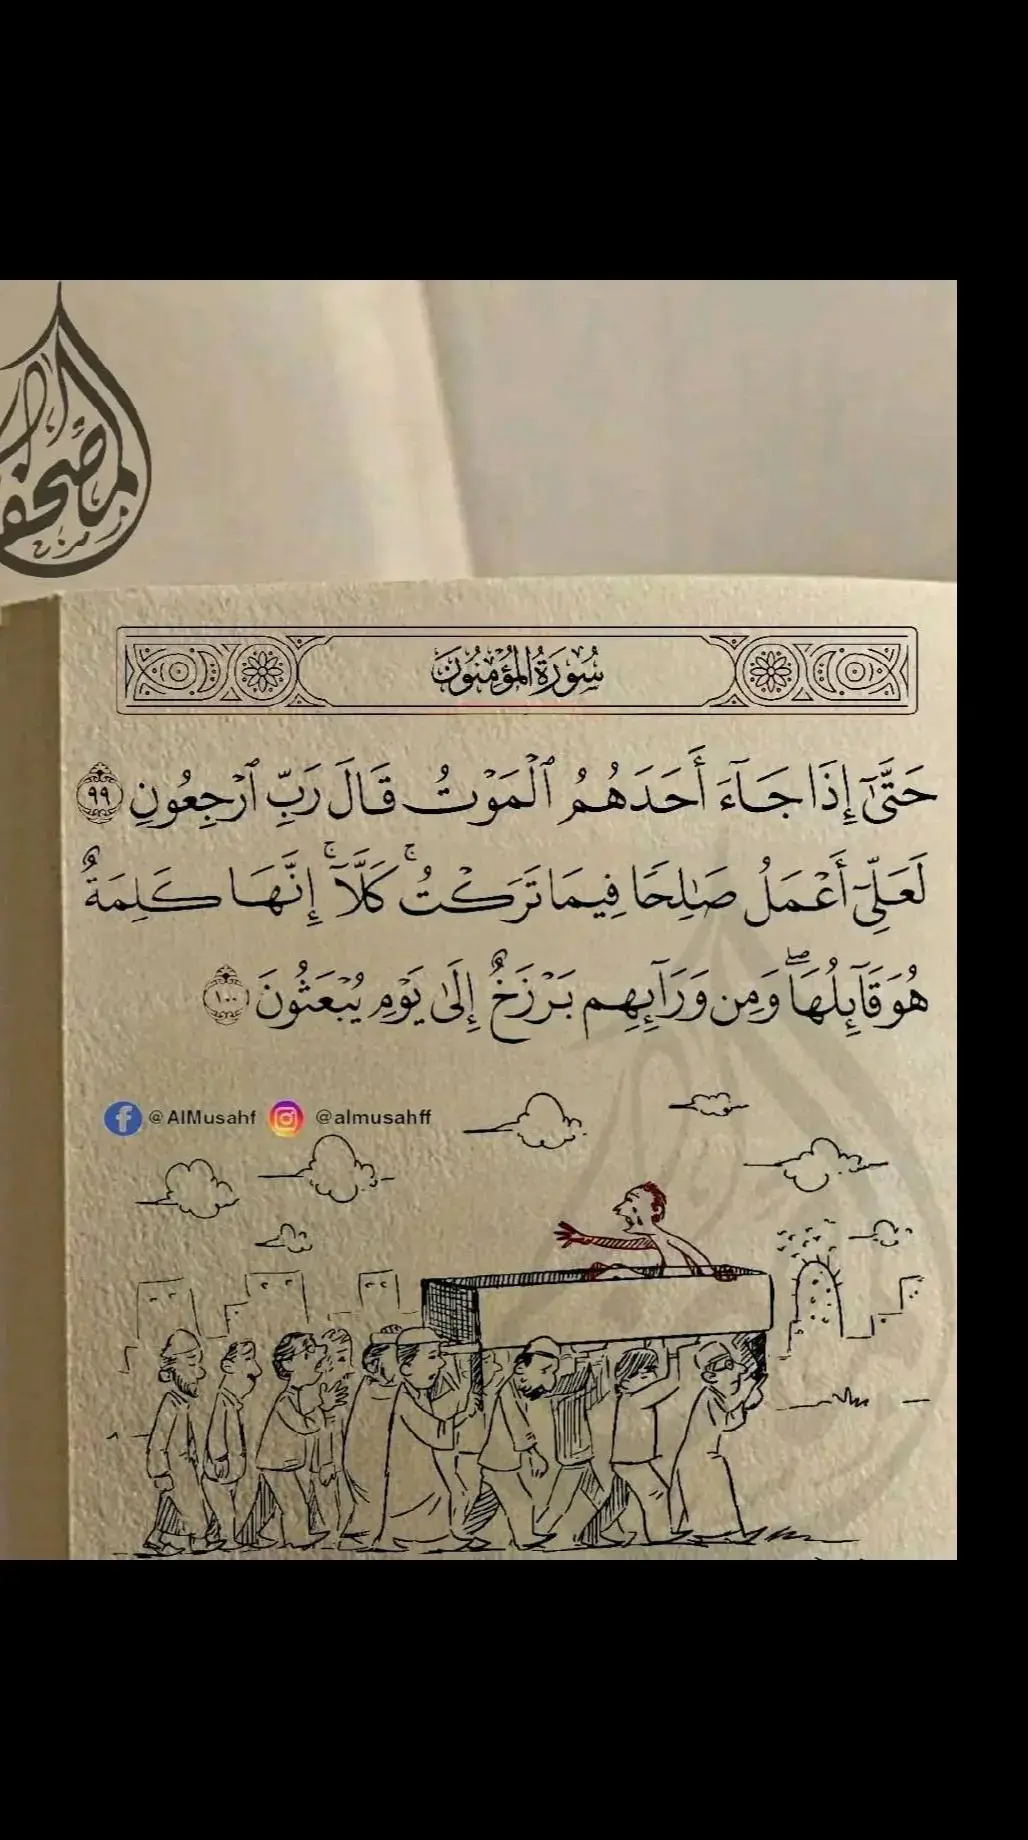 المصحف
سُورَةُ المُؤْمِنُونَ
حَتَّىٰٓ إِذَا جَآءَ أَحَدَهُمُ ٱلْمَوْتُ قَالَ رَبِّ ٱرْجِعُونِ ٩٩
لَعَلِّىٓ أَعْمَلُ صَٰلِحًا فِيمَا تَرَكْتُ ۚ كَلَّآ ۚ إِنَّهَا كَلِمَةٌ
هُوَ قَآئِلُهَا ۖ وَمِن وَرَآئِهِم بَرْزَخٌ إِلَىٰ يَوْمِ يُبْعَثُونَ ١٠٠
@AlMusahf @almusahff